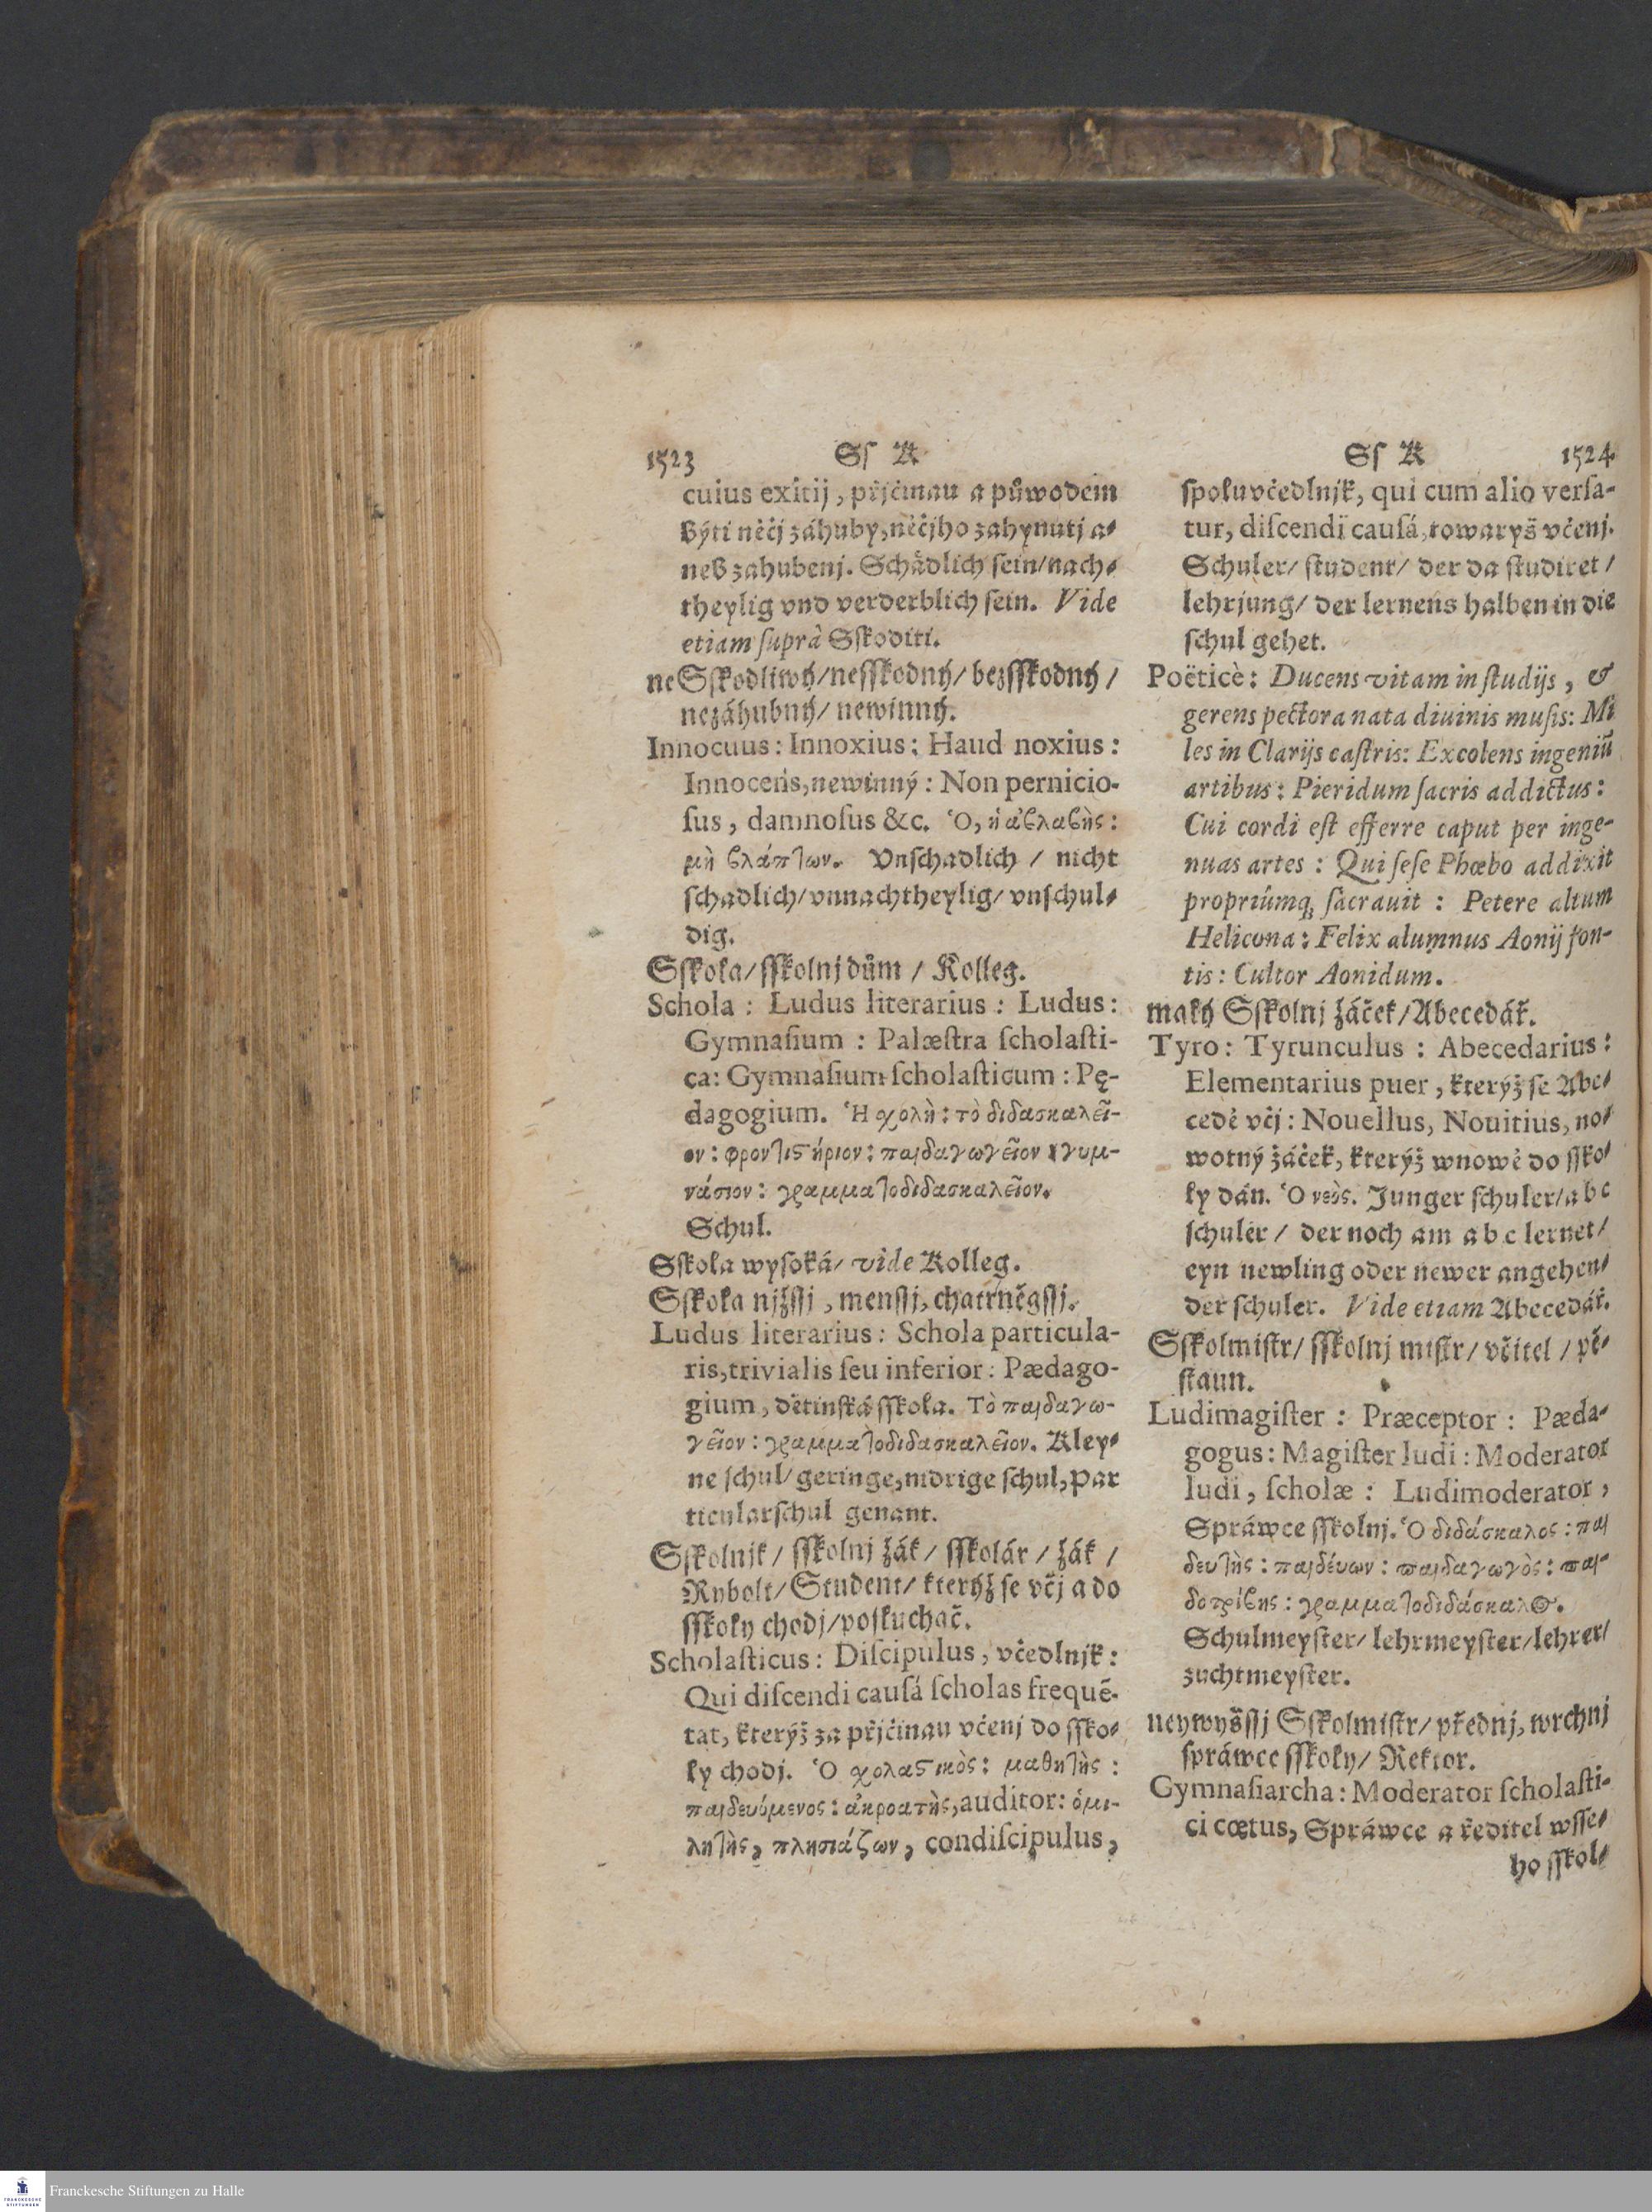 1523 Sſ K
cuius exitij, přjčinau a půwodem
býti něčj záhuby, něčjho zahynutj a⸗
neb zahubenj. Schädlich ſein/nach⸗
theylig vnd verderblich ſein. Vide
etiam ſuprà Sſkoditi.
neSſkodliwý/neſſkodný/bezſſkodný/
nezáhubný/ newinný.
Innocuus: Innoxius: Haud noxius:
Innocens, newinný: Non pernicio-
ſus, damnoſus &c. Ὁ, ἡ ἀϐλαϐὴς:
μὴ βλάπτων. Vnſchadlich / nicht
ſchadlich/vnnachtheylig/vnſchul⸗
dig.
Sſkola/ſſkolnj dům / Kolleg.
Schola: Ludus literarius: Ludus:
Gymnaſium: Palæſtra ſcholaſti-
ca: Gymnaſium ſcholaſticum: Pę-
dagogium. Ἡ σχολὴ: τὸ διδασκαλεῖ-
ον: φροντιστήριον: παιδαγωγεῖον: γυμ-
νάσιον: γραμματοδιδασκαλεῖον.
Schul.
Sſkola wyſoká/ vide Kolleg.
Sſkola nižſſj, menſſj, chatrněgſſj.
Ludus literarius: Schola particula-
ris, trivialis ſeu inferior: Pædago-
gium, dětinſká ſſkola. Τὸ παιδαγω-
γεῖον: γραμματοδιδασκαλεῖον. Kley⸗
ne ſchul/ geringe, nidrige ſchul, par
ticularſchul genant.
Sſkolnjk/ ſſkolnj žák/ ſſkolár/ žák/
Rybolt/ Student/ kterýž ſe včj a do
ſſkoly chodj/poſluchač.
Scholaſticus: Diſcipulus, včedlnjk:
Qui diſcendi cauſá ſcholas frequē-
tat, kterýž za přjčinau včenj do ſſko⸗
ly chodj. Ὁ σχολαστικὸς: μαθητὴς:
παιδευόμενος: ἀκροατὴς, auditor: ὁμι-
λητὴς, πλησιάζων, condiſcipulus,
Sſ K 1524
ſpoluvčedlnjk, qui cum alio verſa-
tur, diſcendi cauſá, towaryš včenj.
Schuler/ ſtudent/ der da ſtudiret/
lehrjung/ der lernens halben in die
ſchul gehet.
Poëticè: Ducens vitam in ſtudijs, &
gerens pectora nata diuinis muſis: Mi
les in Clarijs caſtris: Excolens ingeniū
artibus: Pieridum ſacris addictus:
Cui cordi eſt efferre caput per inge-
nuas artes: Qui ſeſe Phœbo addixit
propriúmq; ſacrauit: Petere altum
Helicona: Felix alumnus Aonij fon-
tis: Cultor Aonidum.
malý Sſkolnj žáček/Abecedář.
Tyro: Tyrunculus: Abecedarius:
Elementarius puer, kterýž ſe Abe⸗
cedě včj: Nouellus, Nouitius, no⸗
wotný žáček, kterýž wnowě do ſſko⸗
ly dán. Ὁ νεὸς. Junger ſchuler/a b c
ſchuler/ der noch am a b c lernet/
eyn newling oder newer angehen⸗
der ſchuler. Vide etiam Abecedář.
Sſkolmiſtr/ ſſkolnj miſtr/ včitel/ pě⸗
ſtaun.
Ludimagiſter: Præceptor: Pæda-
gogus: Magiſter ludi: Moderator
ludi, ſcholæ: Ludimoderator,
Spráwce ſſkolnj. Ὁ διδάσκαλος: παι
δευτὴς: παιδέυων: παιδαγωγὸς: παι-
δοτρίϐης: γραμματοδιδάσκαλος.
Schulmeyſter/ lehrmeyſter/lehrer/
zuchtmeyſter.
neywyšſſj Sſkolmiſtr/ přednj, wrchnj
ſpráwce ſſkoly/ Rektor.
Gymnaſiarcha: Moderator ſcholaſti-
ci cœtus, Spráwce a ředitel wſſe⸗
ho ſſkol⸗
Franckesche Stiftungen zu Halle
FRANCKESCHE
STIFTUNGEN